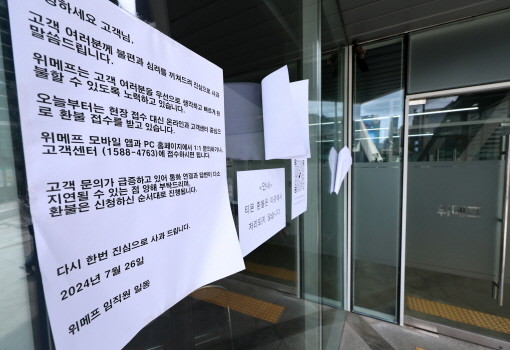 안녕하세요 고객님.
고객 여러분께 불편과 심려를 끼쳐드려 진심으로 사과
말씀드립니다.
위메프는 고객 여러분을 우선으로 생각하고 빠르게 환
불할 수 있도록 노력하고 있습니다.
오늘부터는 현장 접수 대신 온라인과 고객센터 중심으
로 환불 접수를 받고 있습니다.
위메프 모바일 앱과 PC 홈페이지에서 1:1 문의하기나,
고객센터 (1588-4763)에 접수하시면 됩니다.
고객 문의가 급증하고 있어 통화 연결과 답변이 다소
지연될 수 있는 점 양해 부탁드리며,
환불은 신청하신 순서대로 진행됩니다.
다시 한번 진심으로 사과 드립니다.
2024년 7월 26일
위메프 임직원 일동
<안내>
티몬 환불은 이곳에서
처리되지 않습니다.